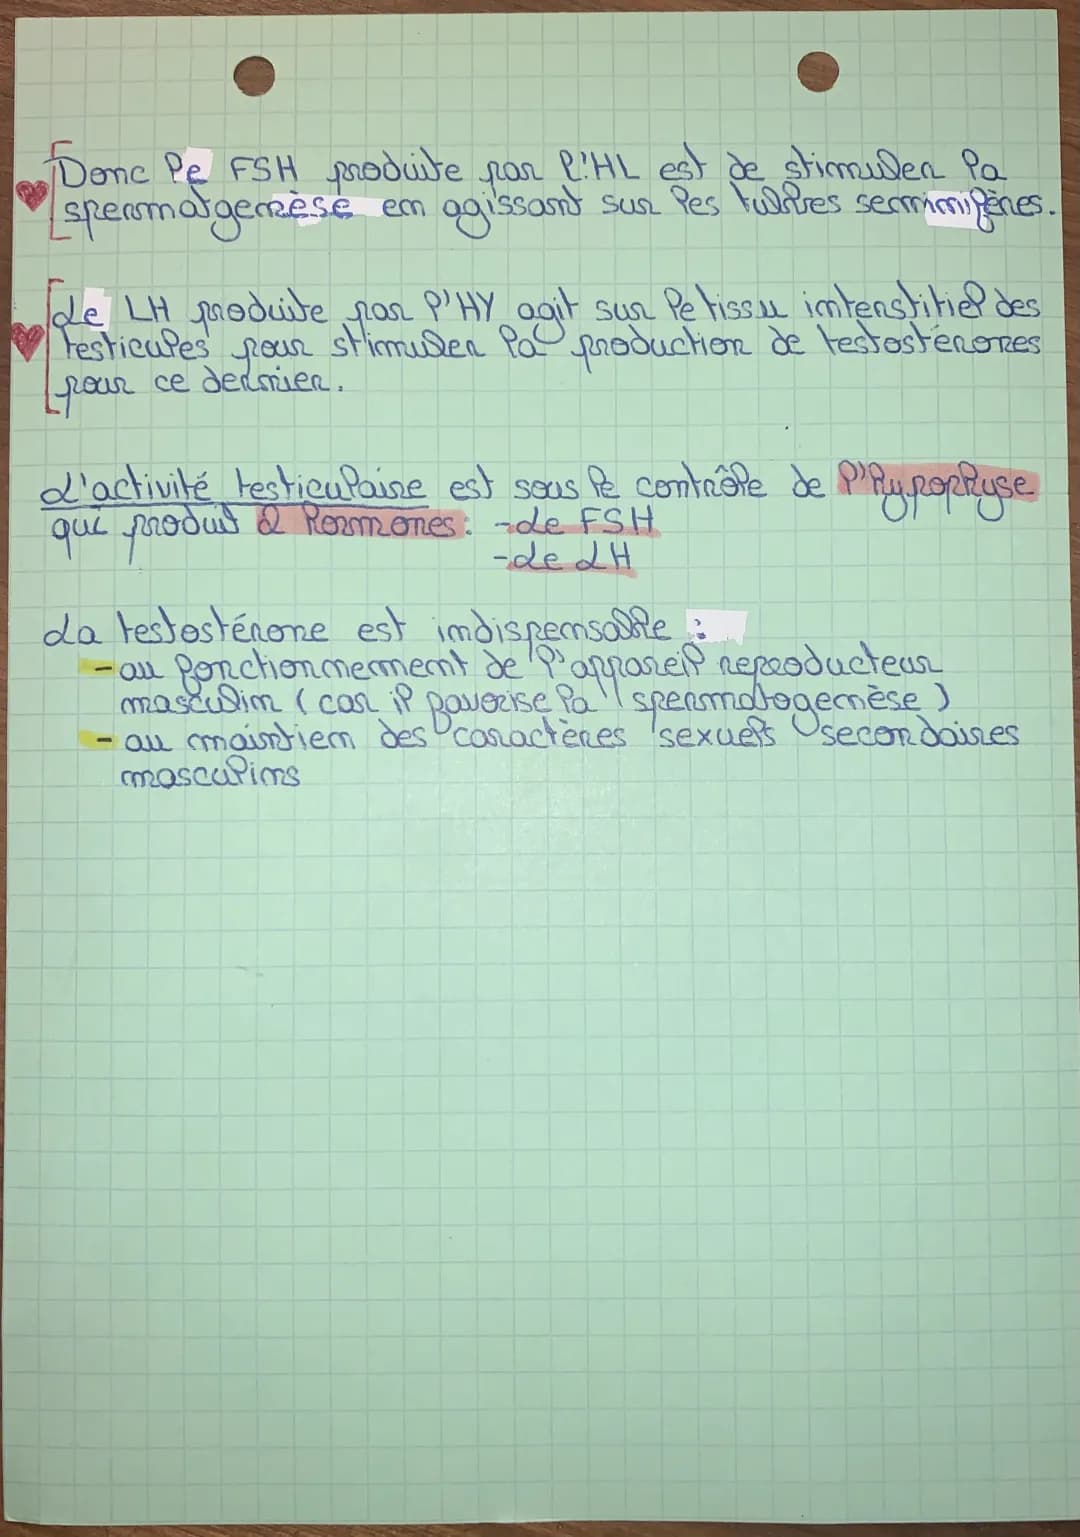 Donc le FSH produite par l'HL est de stimuler la
spermatgenèse en agissant sur les tubes séminifères.
Le LH produite par l'HY agit sur le tissu intenstitiel des
testicules pour stimuler la production de testosténones
pour ce dernier.
L'activité testiculaire est sous le contrôle de l'hypophyse
qui produit 2 hormones: -Le FSH
-Le LH
La testosténone est indispensable :
-au fonctionnement de l'appareil reproducteur
masculin (car il favorise la spermatogenèse)
-au maintien des caractères sexuels secondaires
masculins